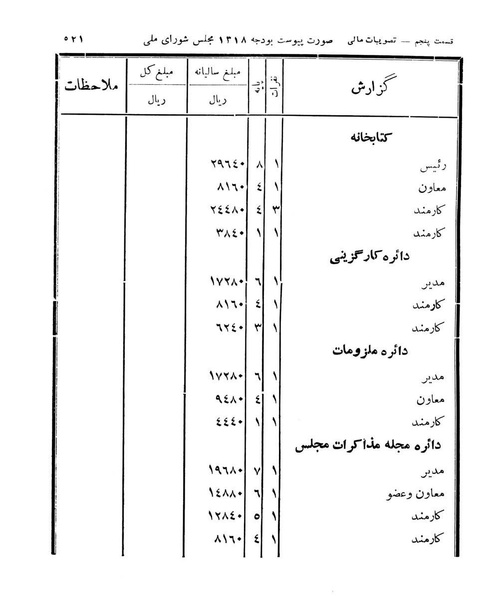 قسمت پنجم — تصویبات مالی صورت پیوست بودجه ۱۳۱۸ مجلس شورای ملی ۵۲۱
گزارش نفرات پایه مبلغ سالیانه ریال مبلغ کل ریال ملاحظات
کتابخانه
رئیس ۱ ۸ ۲۹٦٤۰
معاون ۱ ٤ ۸۱٦۰
کارمند ۳ ٤ ۲٤٤۸۰
کارمند ۱ ۱ ۳۸٤۰
دائره کارگزینی
مدیر ۱ ٦ ۱۷۲۸۰
کارمند ۱ ٤ ۸۱٦۰
کارمند ۱ ۳ ٦۲٤۰
دائره ملزومات
مدیر ۱ ٦ ۱۷۲۸۰
معاون ۱ ٤ ۹٤۸۰
کارمند ۱ ۱ ٤٤٤۰
دائره مجله مذاکرات مجلس
مدیر ۱ ۷ ۱۹٦۸۰
معاون وعضو ۱ ٦ ۱٤۸۸۰
کارمند ۱ ۵ ۱۲۸٤۰
کارمند ۱ ٤ ۸۱٦۰